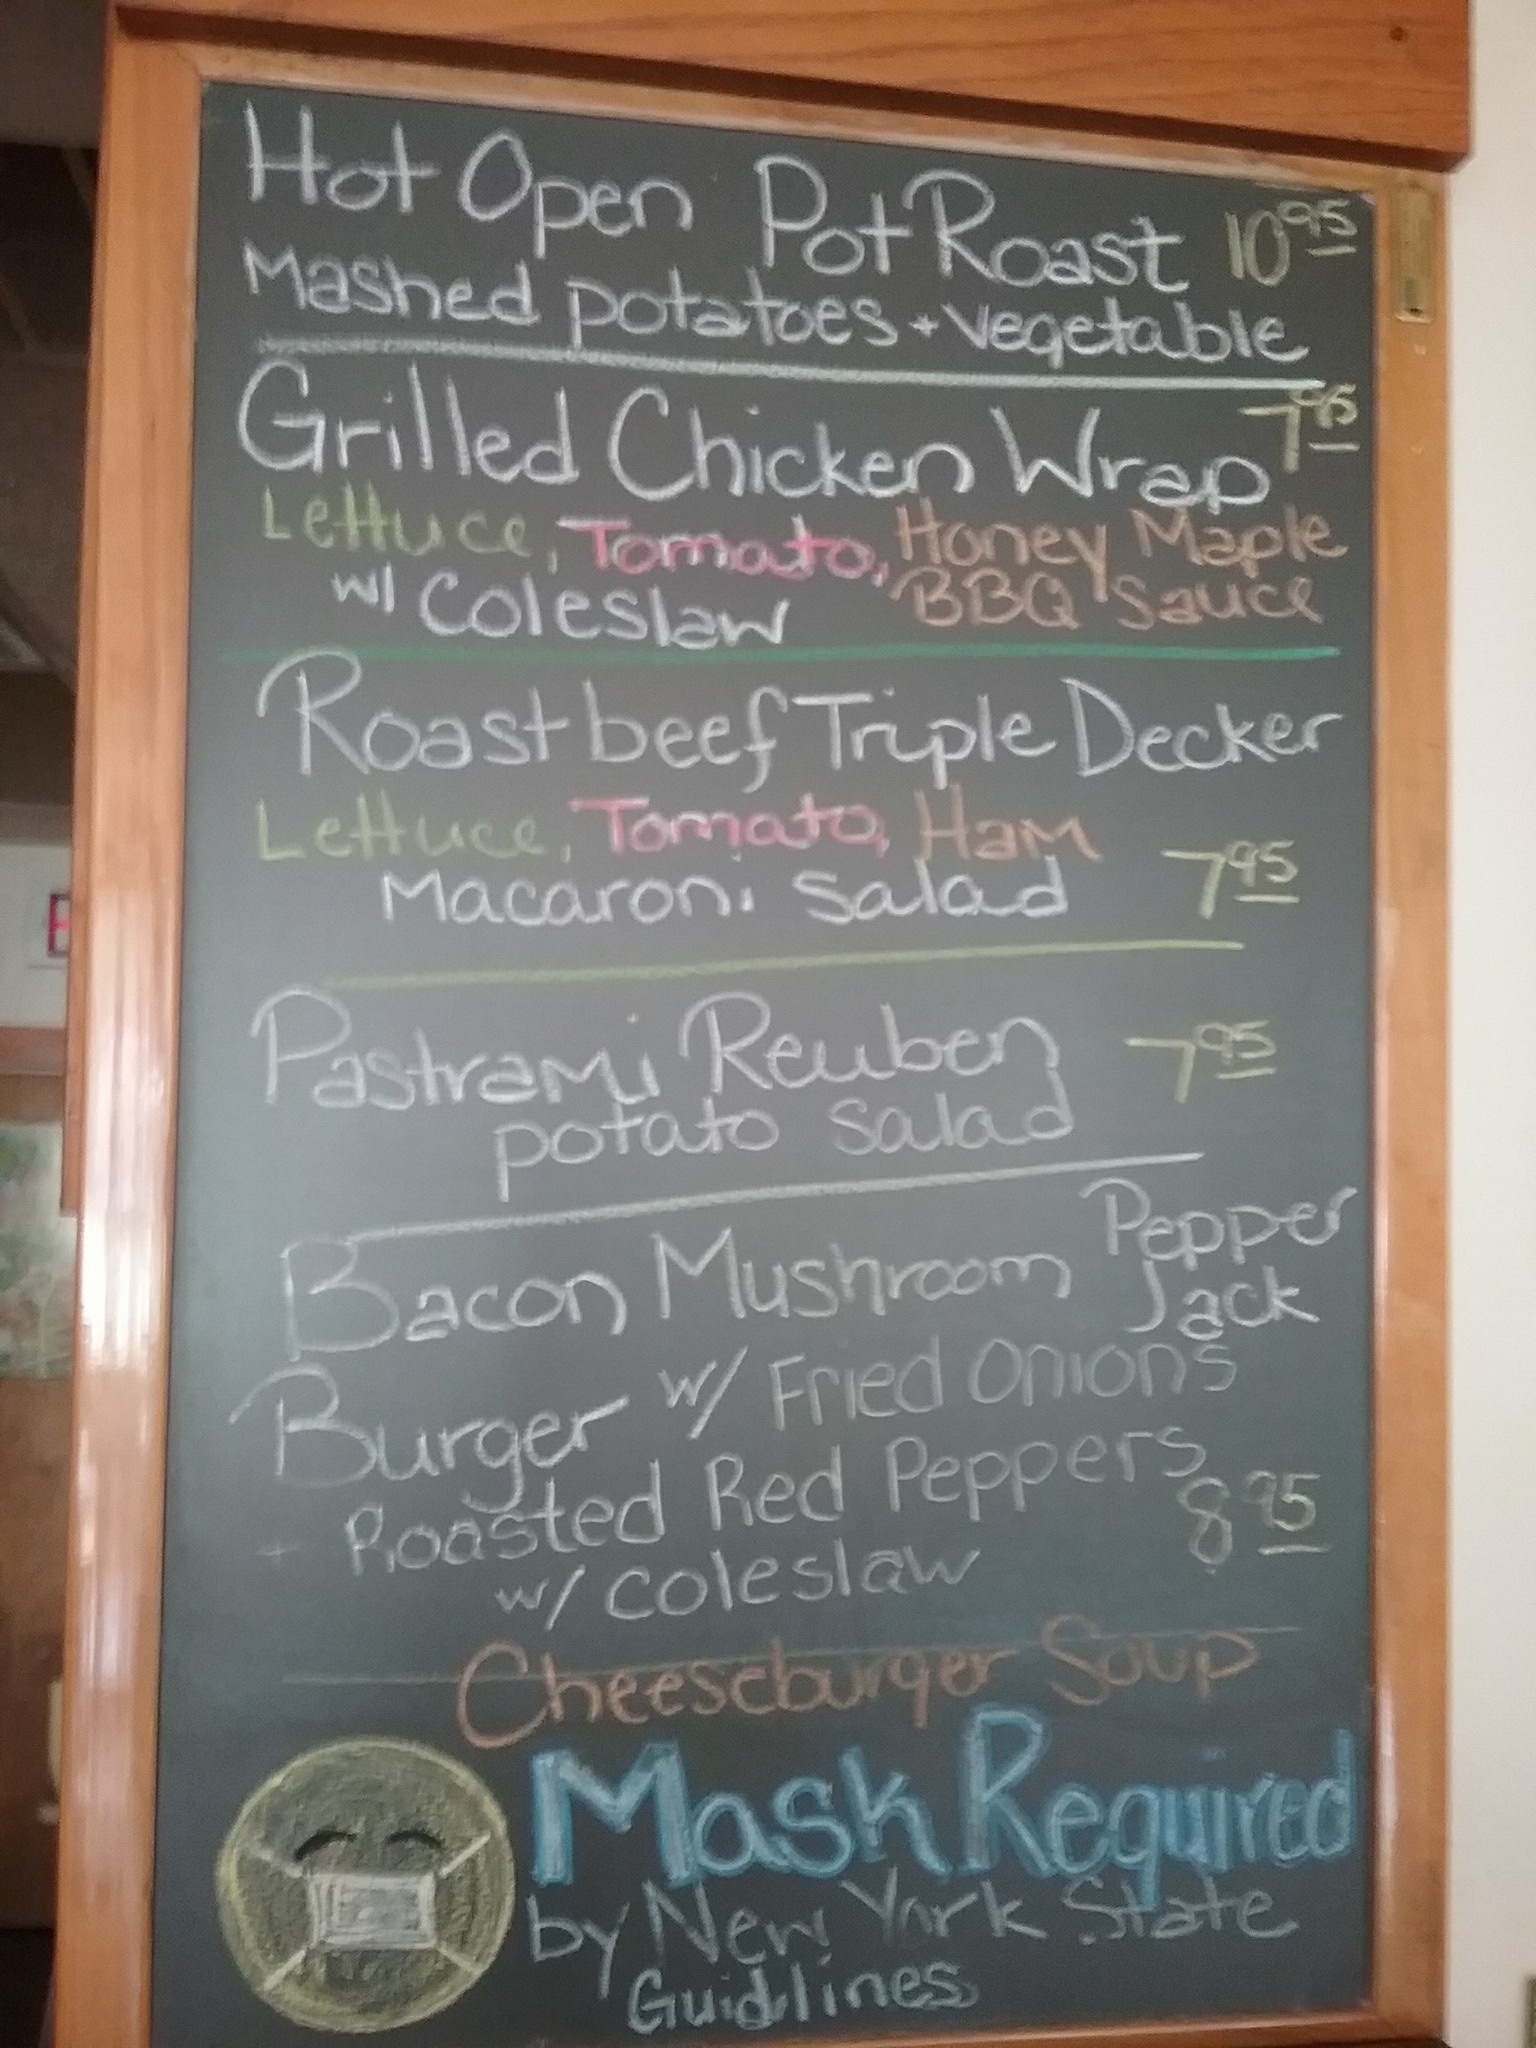 Hot Open Pot Roast 10 95
Mashed potatoes + vegetable
Grilled Chicken Wrap 7 95
Lettuce, Tomato, Honey Maple
w/ Coleslaw BBQ Sauce
Roastbeef Triple Decker
Lettuce, Tomato, Ham
Macaroni Salad 7 95
Pastrami Reuben 7 95
potato Salad
Bacon Mushroom Pepper
Jack
Burger w/ Fried Onions
+ Roasted Red Peppers
w/ coleslaw 8 95
Cheeseburger Soup
Mask Required
by New York State
Guidlines